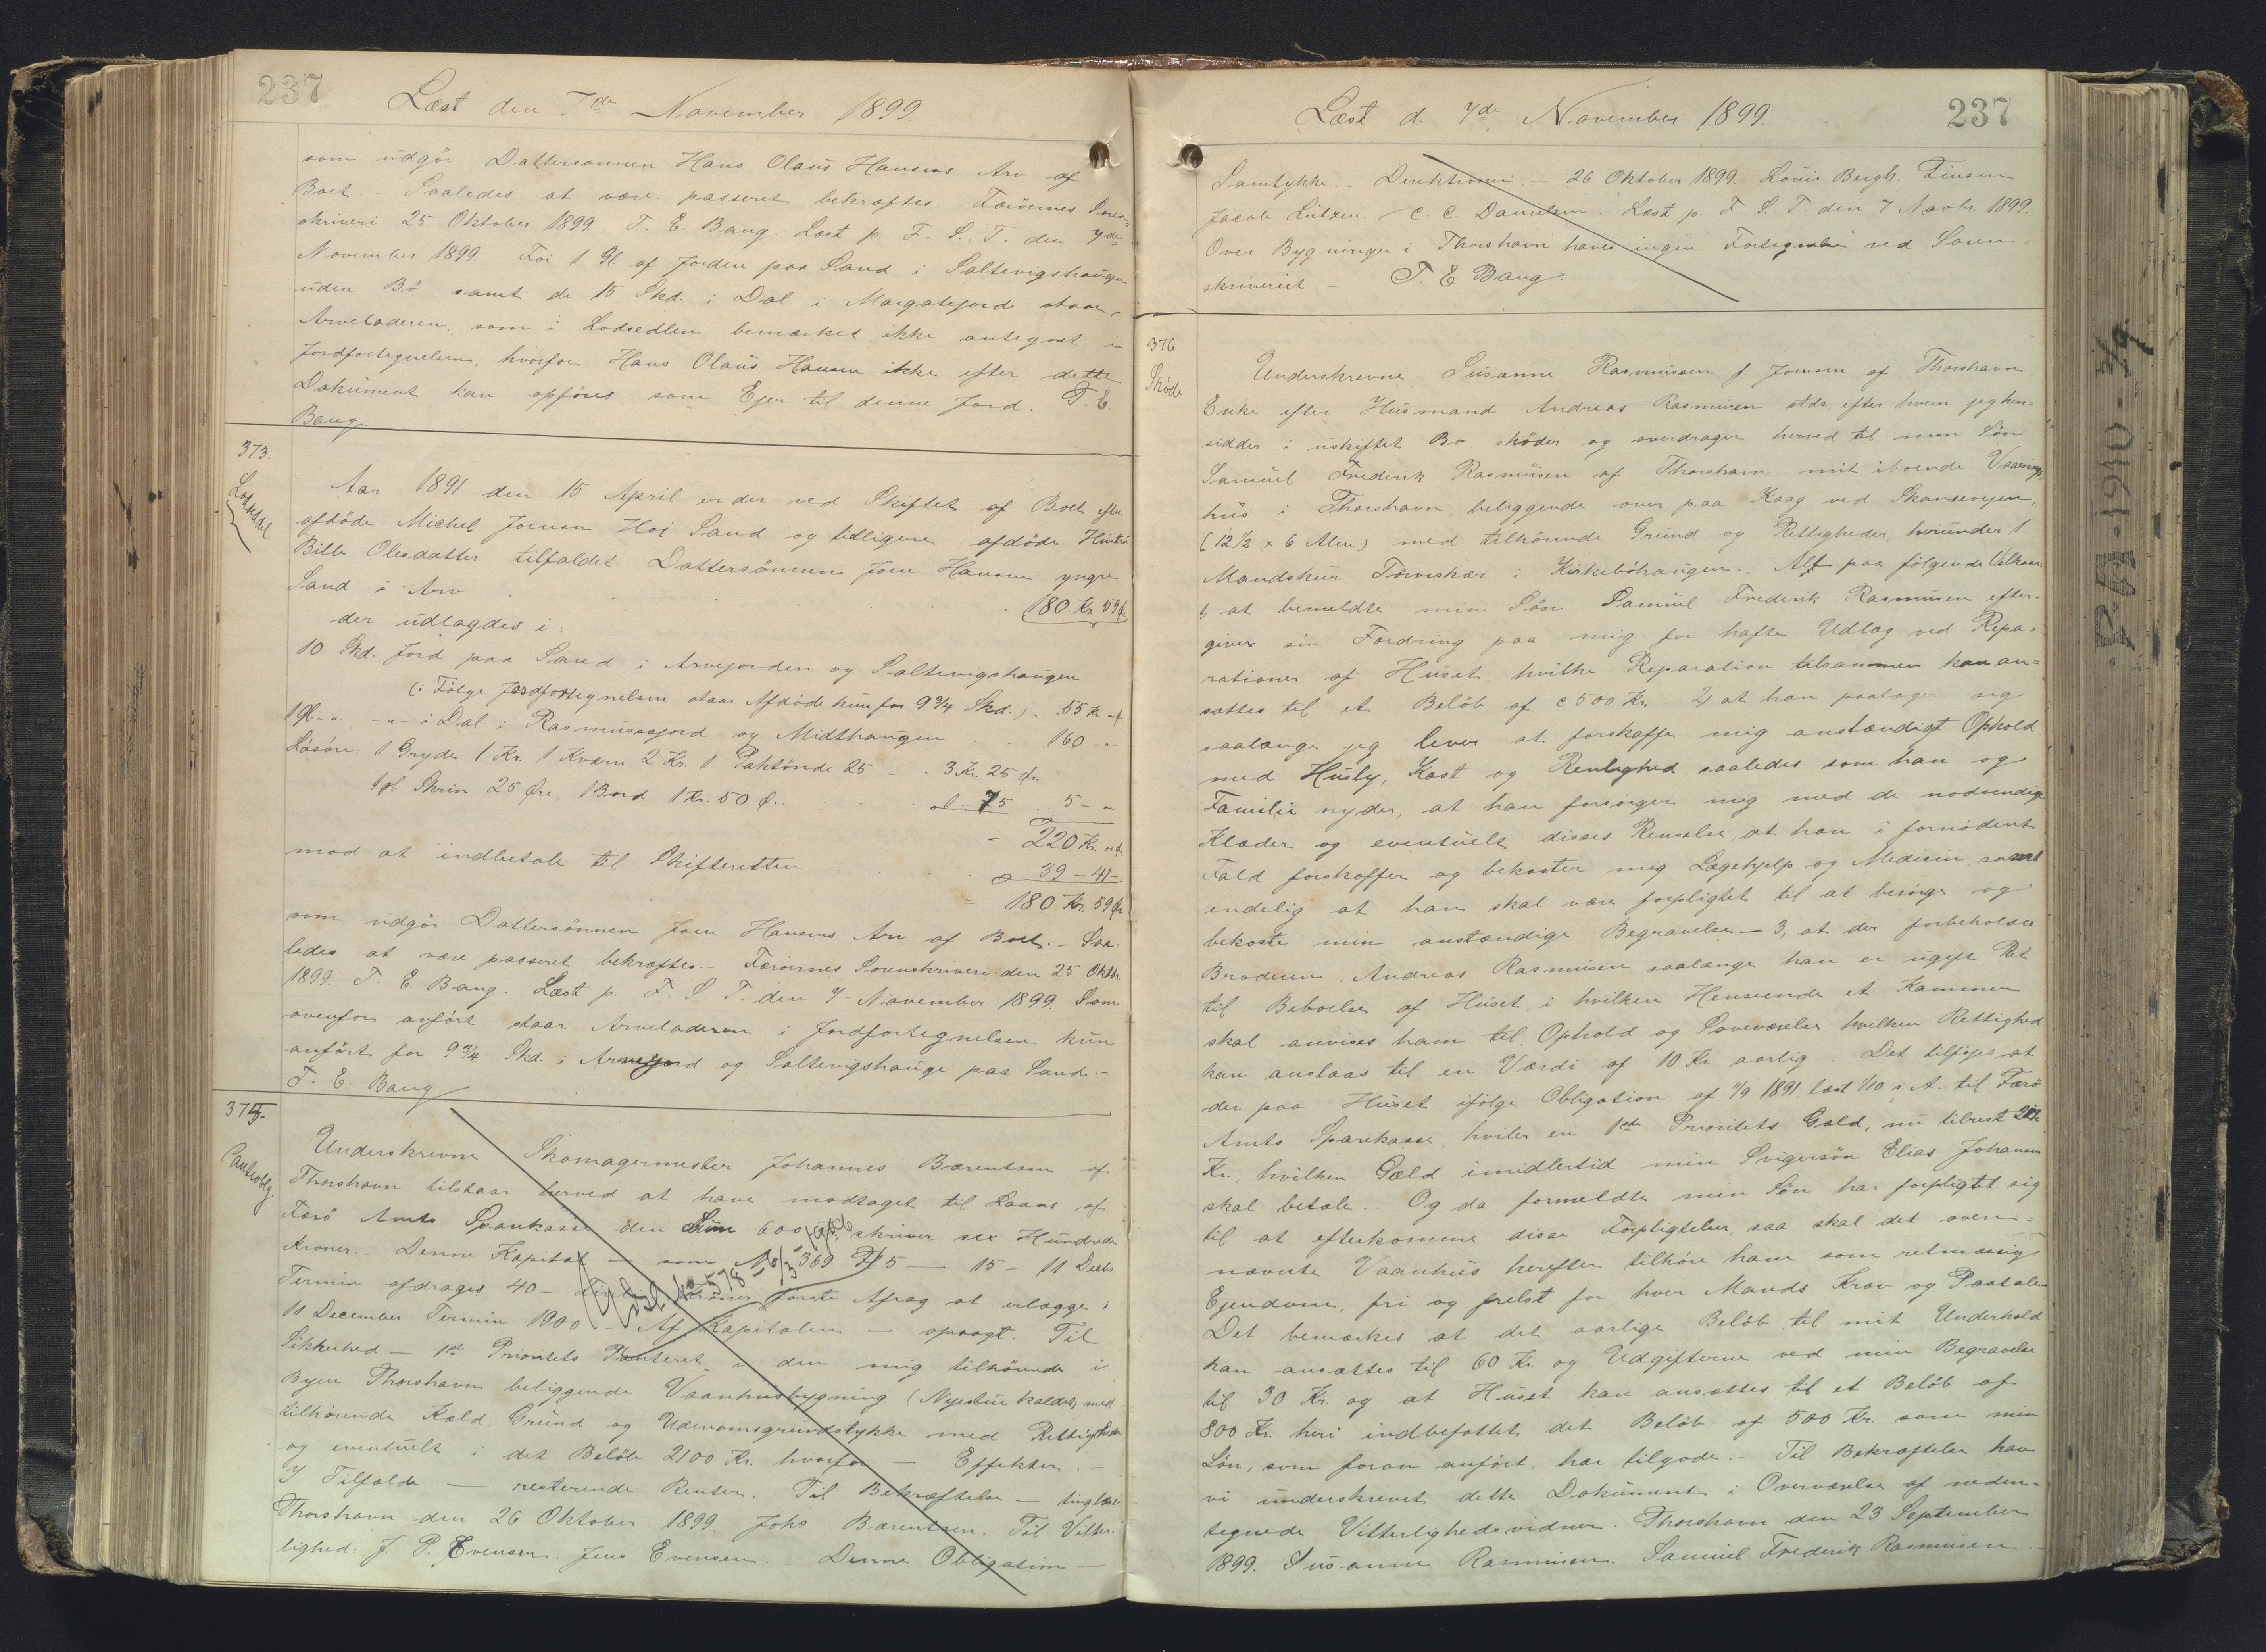 237
Læst den 7de November 1899.
som udgør Dattersønnen Hans Olaus Hansens Arv af
Boet. - Saaledes at være passeret bekræftes. Færöernes Soren-
skriveri 25 Oktober 1899 T. E. Bang. Læst p. F. S. T. den 7de
November 1899. For 1 Gl. af Jorden paa Sand i Saltevigshaugen
uden Bö samt de 15 Skd. i Dal i Morgatsjord staar
Arveladeren, som i Lodsedlen bemærket ikke antegnet i
Jordfortegnelsen, hvorfor Hans Olaus Hansen ikke efter dette
Dokument kan opføres som Ejer til denne Jord. T. E.
Bang.
373.
Lodseddel
Aar 1891 den 15 April er der ved Skiftet af Boet efter
afdöde Michel Joensen Hoj Sand og tidligere afdöde Hustru
Bille Olesdatter tilfaldet Dattersönnen Joen Hansen yngre
Sand i Arv . . . . . 180 Kr. 59 Ø.
der udlagdes i:
10 Skd. Jord paa Sand i Arvejorden og Saltevigshaugen
(: Følge Jordfortegnelsen staar Afdöde kun for 9 3/4 Skd.) . 55 Kr.
1 Gl - " - " - i Dal i Rasmussajord og Midthaugen . . 160 - "
Lösöre: 1 Gryde 1 Kr. 1 Kværn 2 Kr. 1 Saltönde 25 - . 3 Kr. 25 Ør.
1 gl. Skrin 25 Øre, 1 Bord 1 Kr. 50 Ø. . . . 1 - 75 . . 5 - "
- 220 Kr.
mod at indbetale til Skifteretten . . . 39 - 41 -
= 180 Kr. 59 Ør.
som udgör Dattersönnen Joen Hansens Arv af Boet. - Saa-
ledes at være passeret bekræftes. - Færöernes Sorenskriveri den 25 Oktbr.
1899. T. E. Bang. Læst p. F. S. T. den 7 November 1899. Som
ovenfor anfört staar Arveladeren i Jordfortegnelsen kun
anfört for 9 3/4 Skd. i Arvejord og Saltevigshauge paa Sand. -
T. E. Bang
375.
Panteoblg.
Underskrevne Skomagermester Johannes Bærentsen af
Thorshavn tilstaar herved at have modtaget til Laans af
Færö Amts Sparekasse den Sum 600 Kr. skriver sex Hundrede
Kroner. - Denne Kapital - som No 369 - 15 - 11 Decbr.
Termin afdrages 40 - Kroner, förste Afrag at erlægge i
11 December Termin 1900 - Af Kapitalen - opsagt. Til
Sikkerhed - 1ste Prioritets Panteret i den mig tilhörende i
Byen Thorshavn beliggende Vaanhusbygning (Nyestue kaldet) med
tilhörende Kæld. Grund og Udenomsgrundstykke med Rettigheder
og eventuelt i det Belöb 2100 Kr. hvorfor - Effekter. -
I Tilfælde - resterende Renter. Til Bekræftelse - tinglæses
Thorshavn den 26 Oktober 1899. Johs Bærentsen. Til Vitter-
lighed: J. P. Evensen. Jens Evensen. - Denne Obligation -
Læst d. 7de November 1899.
237
Samtykke. - Direktionen - 26 Oktober 1899. Louis Bergh. Finsen
Jacob Lützen C. C. Danielsen. Læst p. F. S. T. den 7 Novbr. 1899.
Over Bygninger i Thorshavn haves ingen Fortegnelse ved Soren-
skriveriet. - T. E. Bang.
376.
Sköde
Underskrevne Susanne Rasmussen f. Joensen af Thorshavn
Enke efter Husmand Andreas Rasmussen stds. efter hvem jeg hen-
sidder i uskiftet Bo sköder og overdrager herved til min Sön
Samuel Frederik Rasmussen af Thorshavn mit iboende Vaanings-
hus i Thorshavn, beliggende over paa Kaag ved Skansevejen,
(12 1/2 x 6 Alen) med tilhörende Grund og Rettigheder, herunder 1
Mandskur Törveskær i Kirkeböhaugen. Alt paa fölgende Vilkaar
1, at bemeldte min Sön Samuel Frederik Rasmussen efter-
giver sin Fordring paa mig for hafte Udlæg ved Repa-
rationer af Huset, hvilke Reparation tilsammen kan an-
sættes til et Belöb af c 500 Kr. - 2, at han paatager sig
saalænge jeg lever at forskaffe mig anstændigt Ophold
med Husly, Kost og Renlighed saaledes som han og
Familie nyder, at han forsörger mig med de nödvendige
Klæder og eventuelt disses Renselse, at han i fornödent
Fald forskaffer og bekoster mig Lægehjelp og Medicin, samt
endelig at han skal være forpligtet til at besörge og
bekoste min anstændige Begravelse - 3, at der forbeholdes
Broderen Andreas Rasmussen, saalænge han er ugift Ret
til Beboelse af Huset, i hvilken Henseende et Kammer
skal anvises ham til Ophold og Soveværelse hvilken Rettighed
kan anslaas til en Værdi af 10 Kr. aarlig. Det tilföjes, at
der paa Huset ifölge Obligation af 11/9 1891 læst 1/10 s. A. til Færö
Amts Sparekasse hviler en 1ste Prioritets Gæld, nu tilrest
Kr., hvilken Gæld imidlertid min Svigersön Elias Johansen
skal betale. - Og da formeldte min Sön har forpligtet sig
til at efterkomme disse Forpligtelser, saa skal det oven-
nævnte Vaanhus herefter tilhöre ham som retmæssig
Ejendom, fri og frelst for hver Mands Krav og Paatale
Det bemærkes at det aarlige Belöb til mit Underhold
kan ansættes til 60 Kr. og Udgifterne ved min Begravelse
til 30 Kr. og at Huset kan ansættes til et Belöb af
800 Kr. heri indbefattet det Belöb af 500 Kr. som min
Sön, som foran anfört, har tilgode. - Til Bekræftelse have
vi underskrevet dette Dokument i Overværelse af neden-
tegnede Vitterlighedsvidner. Thorshavn den 23 September
1899. Susanne Rasmussen. Samuel Frederik Rasmussen